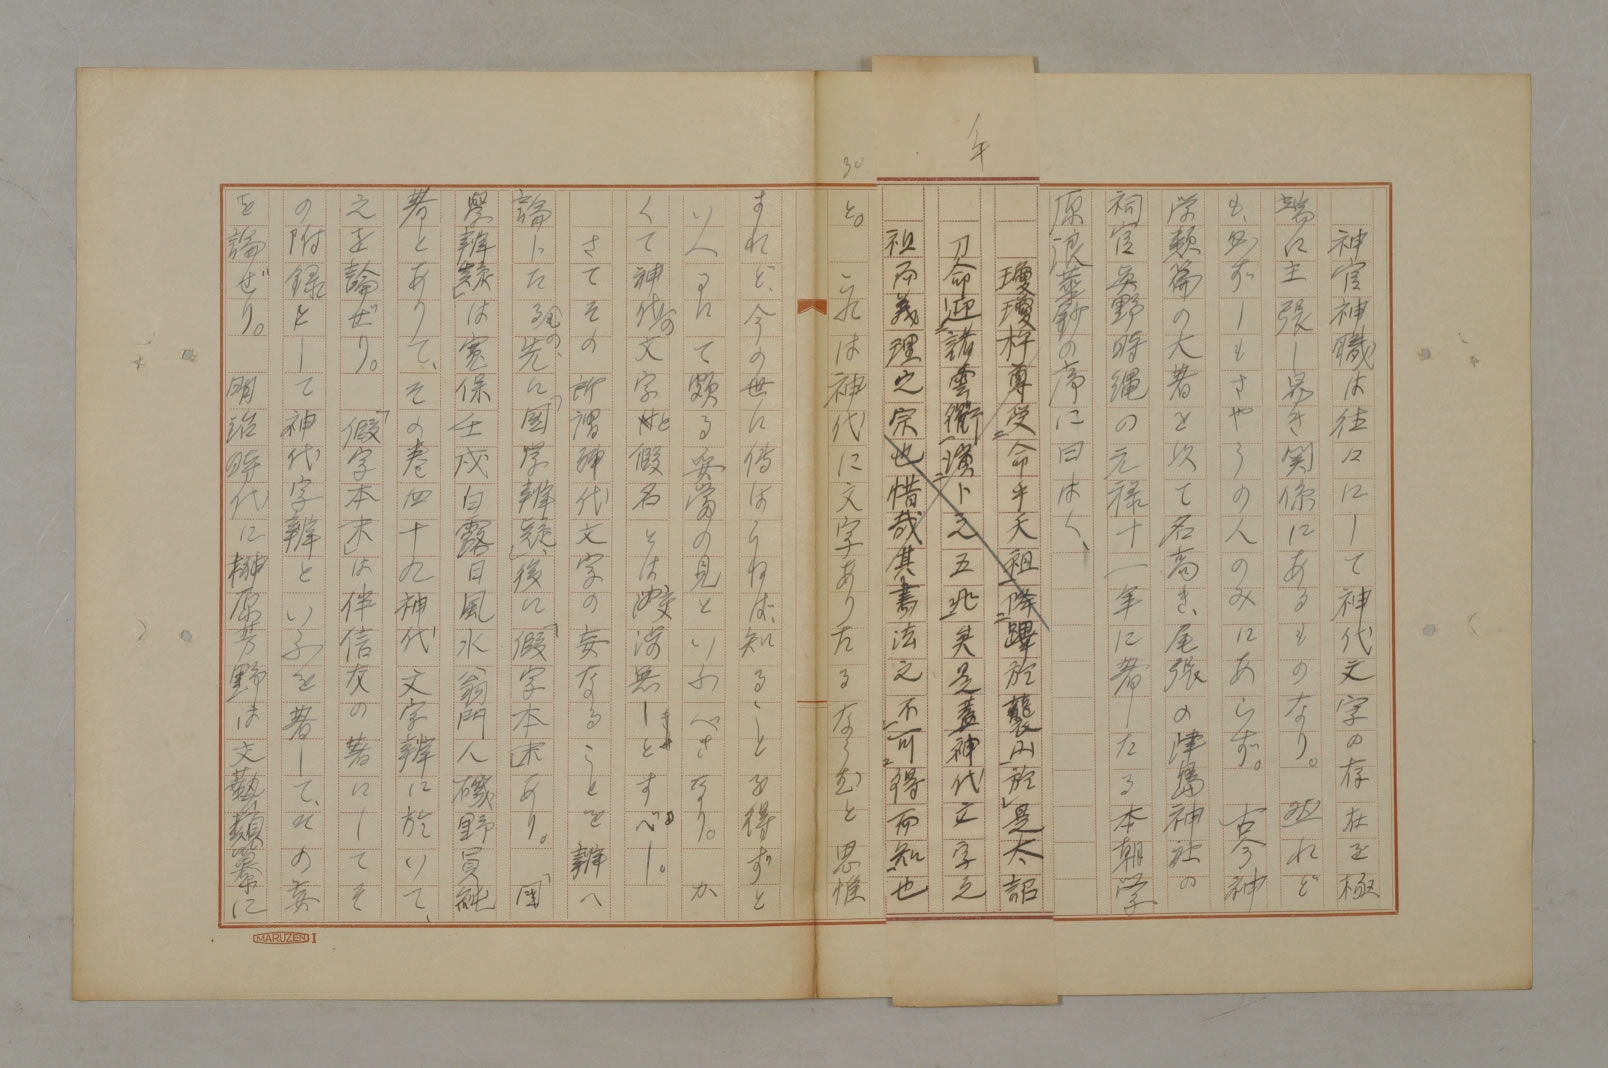 年
30
神官神職は往々にして神代文字の存在を極
端に主張し易き関係にあるものなり。然れど
も、必ずしもさやうの人のみにあらず。古今神
学頼篇の大著を以て名高き、尾張の津島神社の
祠官真野時縄の元禄十一年に著したる本朝学
原浪華鈔の序に曰はく、
瓊瓊杵尊受命乎天祖降蹕於襲山於是太詔
刀命迎諸雲衢演卜之五兆矣是蓋神代文字之
祖而義理之宗也惜哉其書法之不可得而知也
と。これは神代に文字ありたるならむと思惟
すれど、今の世に傳はらねば、知ることを得ずと
いへるにて頗る妥当の見といふべきなり。か
くて神代の文字と假名とは交渉無しとすべし。
さてその所謂神代文字の妄なることを辨へ
論じたるもの、先に「国学辨疑」、後に「假字本末」あり。「国
学辨疑」は寛保壬戌白露日風水翁門人磯野員純
著とありて、その巻四十九神代文字辨に於いて、
之を論ぜり。「假字本末」は伴信友の著にしてそ
の附録として神代字辨といふを著して、その妄
を論ぜり。明治時代に榊原芳野は文藝類纂に
MARUZEN I